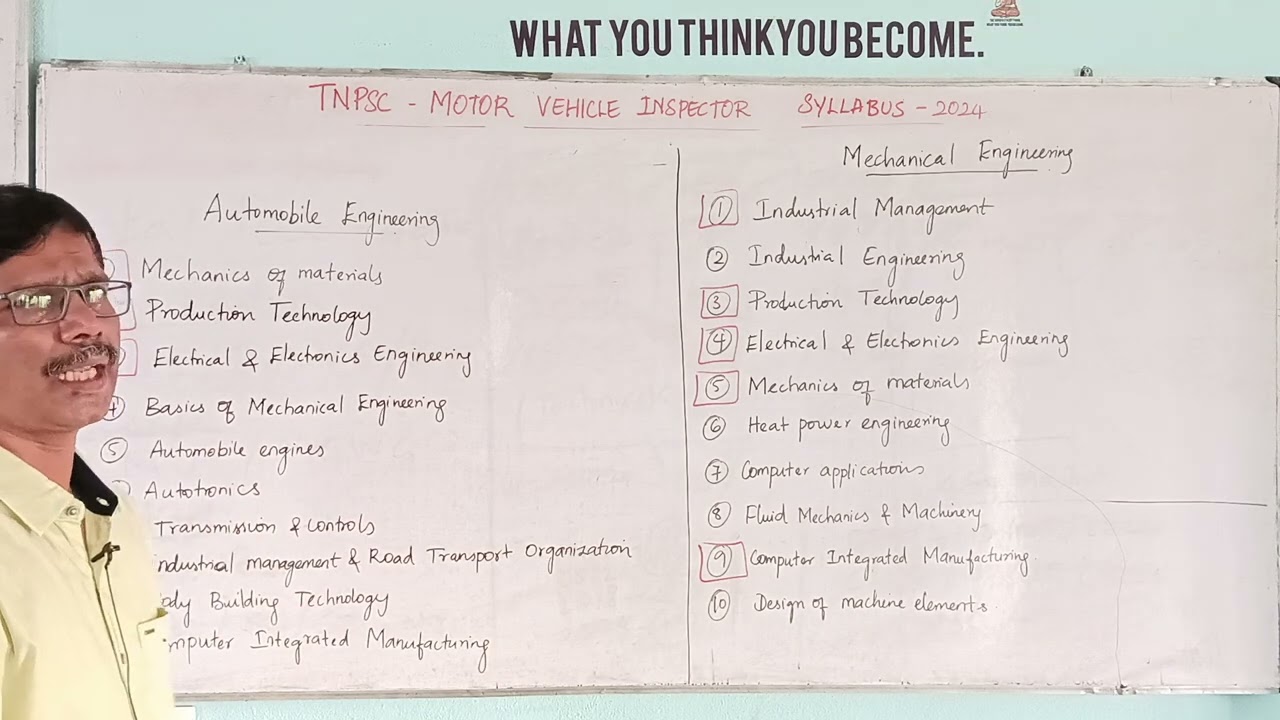 WHAT YOU THINK YOU BECOME.
TNPSC - MOTOR VEHICLE INSPECTOR SYLLABUS - 2024
Automobile Engineering
Mechanics of materials
Production Technology
Electrical & Electronics Engineering
4 Basics of Mechanical Engineering
5 Automobile engines
Autotronics
Transmission & controls
ndustrial management & Road Transport Organization
ody Building Technology
mputer Integrated Manufacturing
Mechanical Engineering
1 Industrial Management
2 Industrial Engineering
3 Production Technology
4 Electrical & Electronics Engineering
5 Mechanics of materials
6 Heat power engineering
7 Computer applications
8 Fluid Mechanics & Machinery
9 Computer Integrated Manufacturing
10 Design of machine elements.